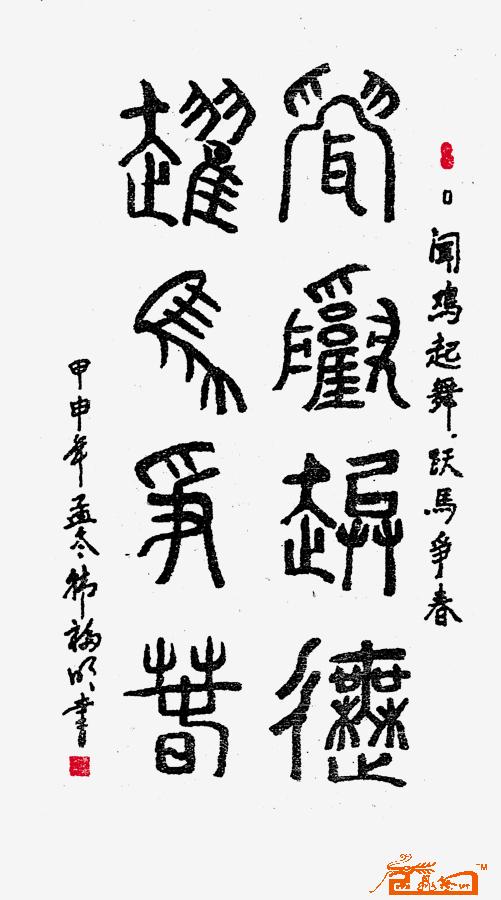 闻鸡起舞.跃馬争春
闻鸡起舞
跃馬争春
甲申年孟冬韩福明书